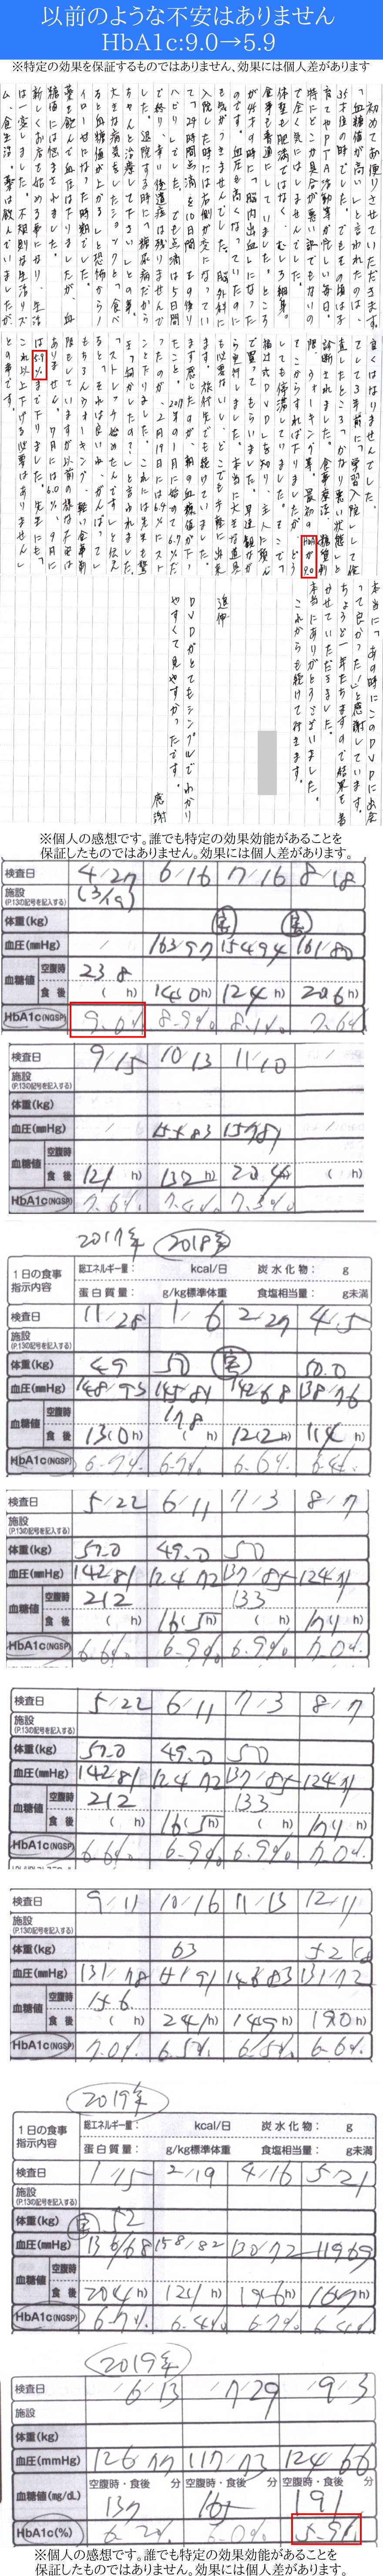 以前のような不安はありません
HbA1c:9.0→5.9
※特定の効果を保証するものではありません、効果には個人差があります
初めてお便りさせていただきます。
「血糖値が高い」と言われたのは、
35才位の時でした。でもその頃は子
育てやPTA活動等が忙しい毎日。
特にどこか具合が悪い訳でもないの
で全く気にはしませんでした。
体型も肥満ではなく、むしろ細身。
食事も普通にしていました。ところ
が44才の時に「脳内出血」になった
のです。血圧も高くなっていたのに
も気がつきませんでした。脳外科に
入院した時には右側が変になってい
て、24時間点滴を10日間。その後リ
ハビリでした。でも点滴は5日間
で終り、幸い後遺症は残りませんで
した。退院する時に「糖尿病だから
ちゃんと治療して下さい」との事。
大きな病気をしたショックと、食べ
ると血糖値が上がると恐怖からノ
イローゼになった時期でした。
薬を飲んで血圧は下りましたが、血
糖値には悩まされました。
新しくお店を始める事になり、生活
は一変しました。不規則な生活リズ
ム、食生活、薬は飲んでいましたが
良くはなりませんでした。
そして3年前に「学習入院」して
直したところ
診断されました。食事療法、糖質制
限、ウォーキング等。最初のHbA1c
が9.0
してもらい、主人に頼ん
で買ってもらいました。早速観なが
ら実行しました。本当に大きな道具
も必要ないし、どこでも手軽に出来
ます。旅行先でも続けていました。
まず感じたのが、朝の血糖値が下っ
たこと。2017年の11月に始めて6.7%だ
ったのが、2月19日には6.4%にスト
ンと下りました。これには先生も驚
「ストレッチ始めたんです」と伝え
もちろんウォーキング、軽い食事制
限もしていますが以前の様な不安は
ありません。7月には6.0%、9月に
は5.9%まで下りました。先生にも「
これ以上下げる必要はありません」
との事です。
本当に「あの時にこのDVDに出会
って良かった!」と感謝しています。
ちょうど一年たちますので結果を書
かせていただきました。
本当にありがとうございました。
これからも続けて行きます。
追伸
DVDがとてもシンプルでわかり
やすくて見やすかったです。
感謝
※個人の感想です。誰でも特定の効果効能があることを
保証したものではありません。効果には個人差があります。
検査日 4/27 6/16 7/16 8/18
施設 (3/19)
(P.13の記号を記入する)
体重(kg)
血圧(mmHg) / 163/97 154/94 161/80
血糖値 空腹時 238
食後 ( h) 145(0h) 124( h) 206( h)
HbA1c(NGSP) 9.0% 8.9% 8.1% 7.6%
検査日 9/15 10/13 11/10 /
施設
(P.13の記号を記入する)
体重(kg)
血圧(mmHg) / 155/83 157/81 /
血糖値 空腹時
食後 121( h) 132( h) 204( h) ( h)
HbA1c(NGSP) 7.6% 7.4% 7.3%
2017年 2018年
1日の食事
指示内容
総エネルギー量: kcal/日 炭水化物: g
蛋白質量: g/kg標準体重 食塩相当量: g未満
検査日 11/28 1/6 2/27 4/5
施設
(P.13の記号を記入する)
体重(kg) 49 50 50.0
血圧(mmHg) 148/93 145/81 142/68 138/76
血糖値 空腹時 178
食後 131(0h) 122( h) 114( h)
HbA1c(NGSP) 6.7% 6.7% 6.6% 6.4%
検査日 5/22 6/11 7/3 8/7
施設
(P.13の記号を記入する)
体重(kg) 50.0 49.0 50
血圧(mmHg) 142/81 124/72 137/85 124/71
血糖値 空腹時 212 133
食後 ( h) 165( h) ( h) 171( h)
HbA1c(NGSP) 6.6% 6.9% 6.9% 7.0%
検査日 5/22 6/11 7/3 8/7
施設
(P.13の記号を記入する)
体重(kg) 50.0 49.0 50
血圧(mmHg) 142/81 124/72 137/85 124/71
血糖値 空腹時 212 133
食後 ( h) 165( h) ( h) 171( h)
HbA1c(NGSP) 6.6% 6.9% 6.9% 7.0%
検査日 9/11 10/16 11/13 12/11
施設
(P.13の記号を記入する)
体重(kg) 63 52
血圧(mmHg) 131/78 151/91 146/83 131/72
血糖値 空腹時 156
食後 ( h) 241( h) 149( h) 190( h)
HbA1c(NGSP) 7.0% 6.5% 6.5% 6.6%
2019年
1日の食事
指示内容
総エネルギー量: kcal/日 炭水化物: g
蛋白質量: g/kg標準体重 食塩相当量: g未満
検査日 1/15 2/19 4/16 5/21
施設
(P.13の記号を記入する)
体重(kg) 52
血圧(mmHg) 136/68 158/82 130/72 119/69
血糖値 空腹時
食後 204( h) 121( h) 196( h) 167( h)
HbA1c(NGSP) 6.7% 6.4% 6.7% 6.4%
2019年
検査日 6/13 7/29 9/3
施設
体重(kg)
血圧(mmHg) 126/77 117/73 124/66
血糖値(mg/dL) 空腹時・食後 分 空腹時・食後 分 空腹時・食後 分
137 165 191
HbA1c(%) 6.2% 6.0% 5.9%
※個人の感想です。誰でも特定の効果効能があることを
保証したものではありません。効果には個人差があります。